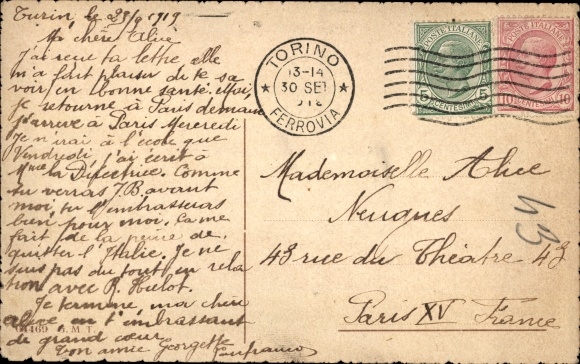 Turin, le 29/9 1919
Ma chère Alice
J'ai reçu ta lettre, elle
m'a fait plaisir de te sa
voir en bonne santé. Moi,
je retourne à Paris demain
j'arrive à Paris Mercredi
Je n'irai à l'école que
Vendredi, j'ai écrit à
Mme la Directrice. Comme
tu verras J.B. avant
moi, tu l'embrasseras
bien pour moi. Ça me
fait de la peine de
quitter l'Italie. Je ne
suis pas du tout en rela
tion avec P. Hulot.
Je termine, ma chère
Alice en t'embrassant
de grand cœur
Ton amie Georgette
4469 G.M.T.
TORINO
13-14
30 SET
FERROVIA
POSTE ITALIANE
5 CENTESIMI 5
POSTE ITALIANE
10 CENTESIMI 10
Mademoiselle Alice
Neugnes
43 rue du Théatre 43
Paris XV France
43